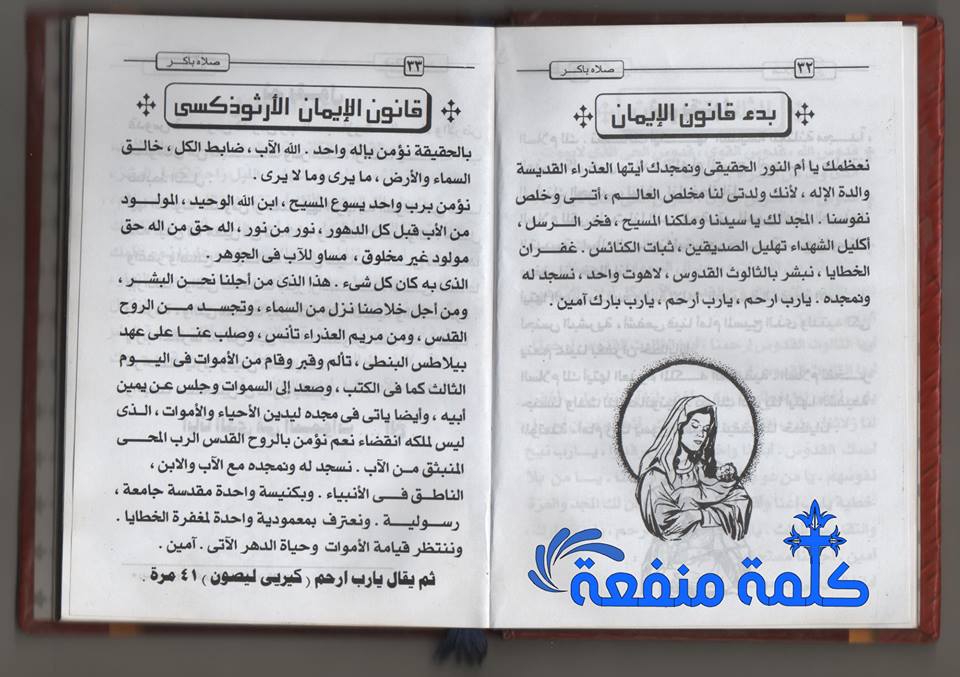 ٣٢
صلاة باكر
بدء قانون الإيمان
نعظمك يا أم النور الحقيقى ونمجدك أيتها العذراء القديسة
والدة الإله ، لأنك ولدتى لنا مخلص العالم ، أتى وخلص
نفوسنا . المجد لك يا سيدنا وملكنا المسيح ، فخر الرسل ،
أكليل الشهداء تهليل الصديقين ، ثبات الكنائس . غفران
الخطايا ، نبشر بالثالوث القدوس ، لاهوت واحد ، نسجد له
ونمجده . يارب ارحم ، يارب أرحم ، يارب بارك آمين .
كلمة منفعة
٣٣
صلاة باكر
قانون الإيمان الأرثوذكسى
بالحقيقة نؤمن بإله واحد . الله الآب ، ضابط الكل ، خالق
السماء والأرض ، ما يرى وما لا يرى .
نؤمن برب واحد يسوع المسيح ، ابن الله الوحيد ، المولود
من الأب قبل كل الدهور ، نور من نور ، اله حق من اله حق
مولود غير مخلوق ، مساو للآب فى الجوهر .
الذى به كان كل شىء . هذا الذى من أجلنا نحن البشر ،
ومن أجل خلاصنا نزل من السماء ، وتجسد من الروح
القدس ، ومن مريم العذراء تأنس ، وصلب عنا على عهد
بيلاطس البنطى ، تألم وقبر وقام من الأموات فى اليوم
الثالث كما فى الكتب ، وصعد إلى السموات وجلس عن يمين
أبيه ، وأيضا ياتى فى مجده ليدين الأحياء والأموات ، الذى
ليس لملكه انقضاء نعم نؤمن بالروح القدس الرب المحى
المنبثق من الآب . نسجد له ونمجده مع الآب والابن ،
الناطق فى الأنبياء . وبكنيسة واحدة مقدسة جامعة ،
رسولية . ونعترف بمعمودية واحدة لمغفرة الخطايا .
وننتظر قيامة الأموات وحياة الدهر الآتى . آمين .
ثم يقال يارب ارحم ( كيريى ليصون ) ٤١ مرة